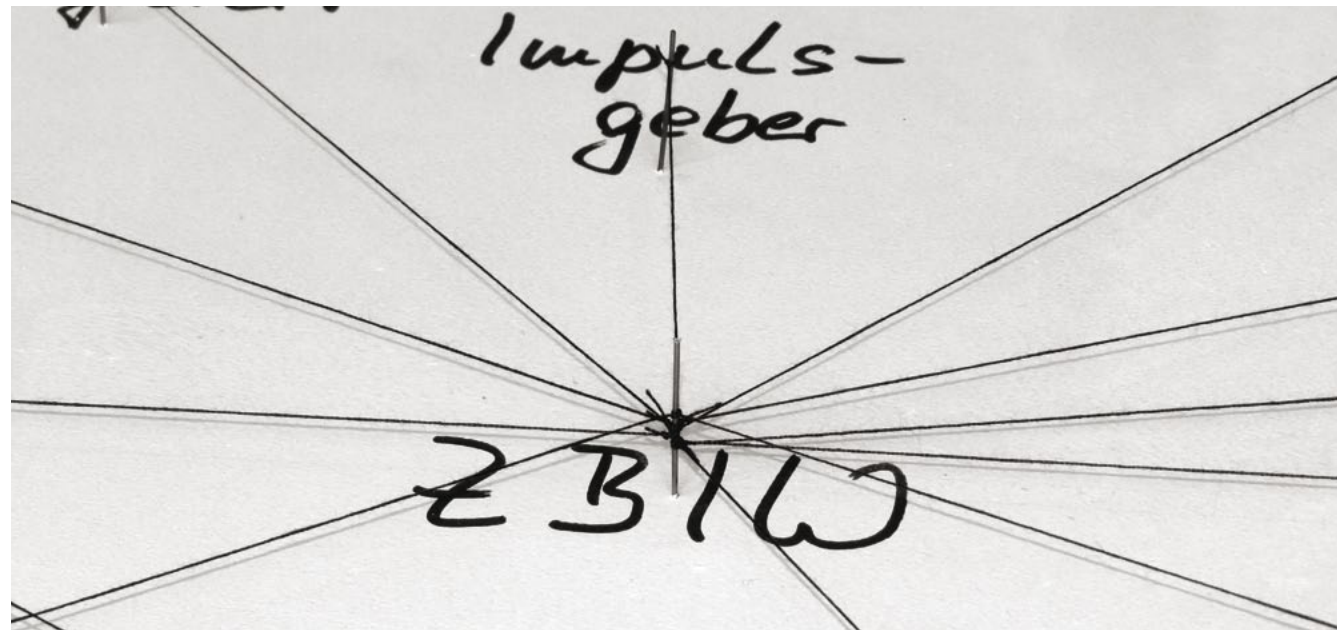 Impuls-
geber
ZBIW